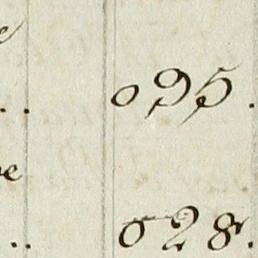 e
.. 095.
e
.. 028.